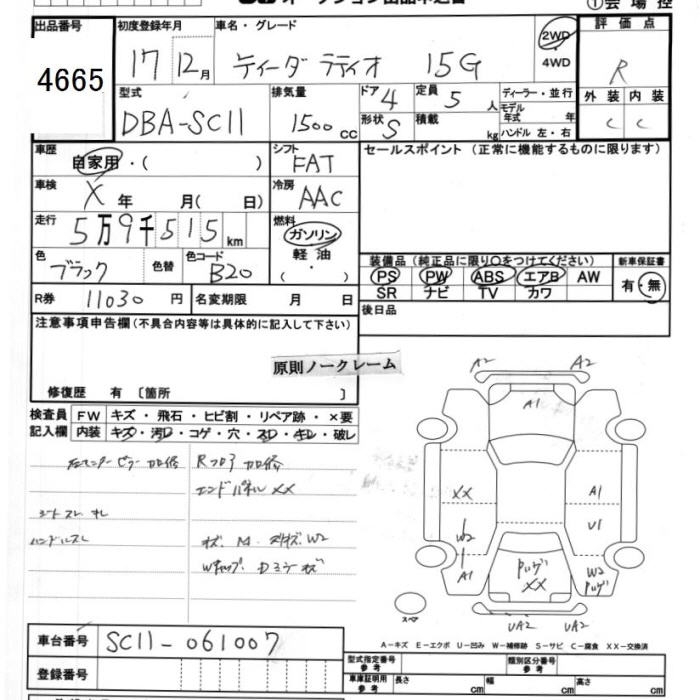 ①会場控
出品番号 初度登録年月 車名・グレード 2WD 4WD 評価点
4665 17 12月 ティーダ ラティオ 15G R
型式 排気量 ドア 4 定員 5人 ディーラー・並行 外装 内装
DBA-SC11 1500cc 形状 S 積載 kg モデル年式 年式 ハンドル 左・右 C C
車歴 自家用・( ) シフト FAT セールスポイント(正常に機能するものに限ります)
車検 X 年 月( 日) 冷房 AAC
走行 5万9千515km 燃料 ガソリン 軽油 ( ・ )
色 ブラック 色替 色コード B20
装備品(純正品に限り○をつけてください) 新車保証書
PS PW ABS エアB AW 有・無
SR ナビ TV カワ
R券 11030円 名変期限 月 日 後日品
注意事項申告欄(不具合内容等は具体的に記入して下さい)
原則ノークレーム
修復歴 有 〔箇所 〕
検査員 FW キズ・飛石・ヒビ割・リペア跡・×要
記入欄 内装 キズ・汚レ・コゲ・穴・スレ・キレ・破レ
左センターピラー加修 Rフロア加修
エンドパネル XX
シートスレ オレ
ハンドルスレ
A2 A2
A1
XX A1
W2 U1
A1 XX W2
UA2 UA2
スペア
A-キズ E-エクボ U-凹み W-補修跡 S-サビ C-腐食 XX-交換済
車台番号 SC11-061007
登録番号
型式指定番号 参考 類別区分番号 参考
車庫証明用 参考 長さ cm 幅 cm 高さ cm